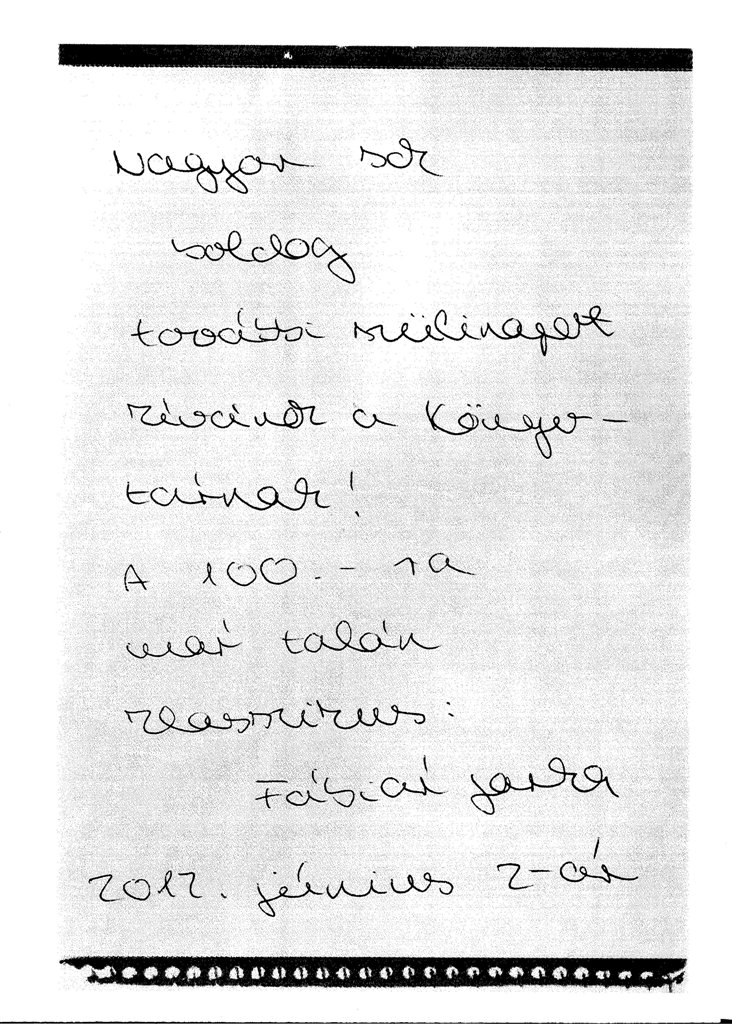 Nagyon sok
boldog
további szülinapot
kívánok a Könyv-
tárnak!
A 100.-ra
már talán
klasszikus:
Fábián Janka
2012. június 2-án